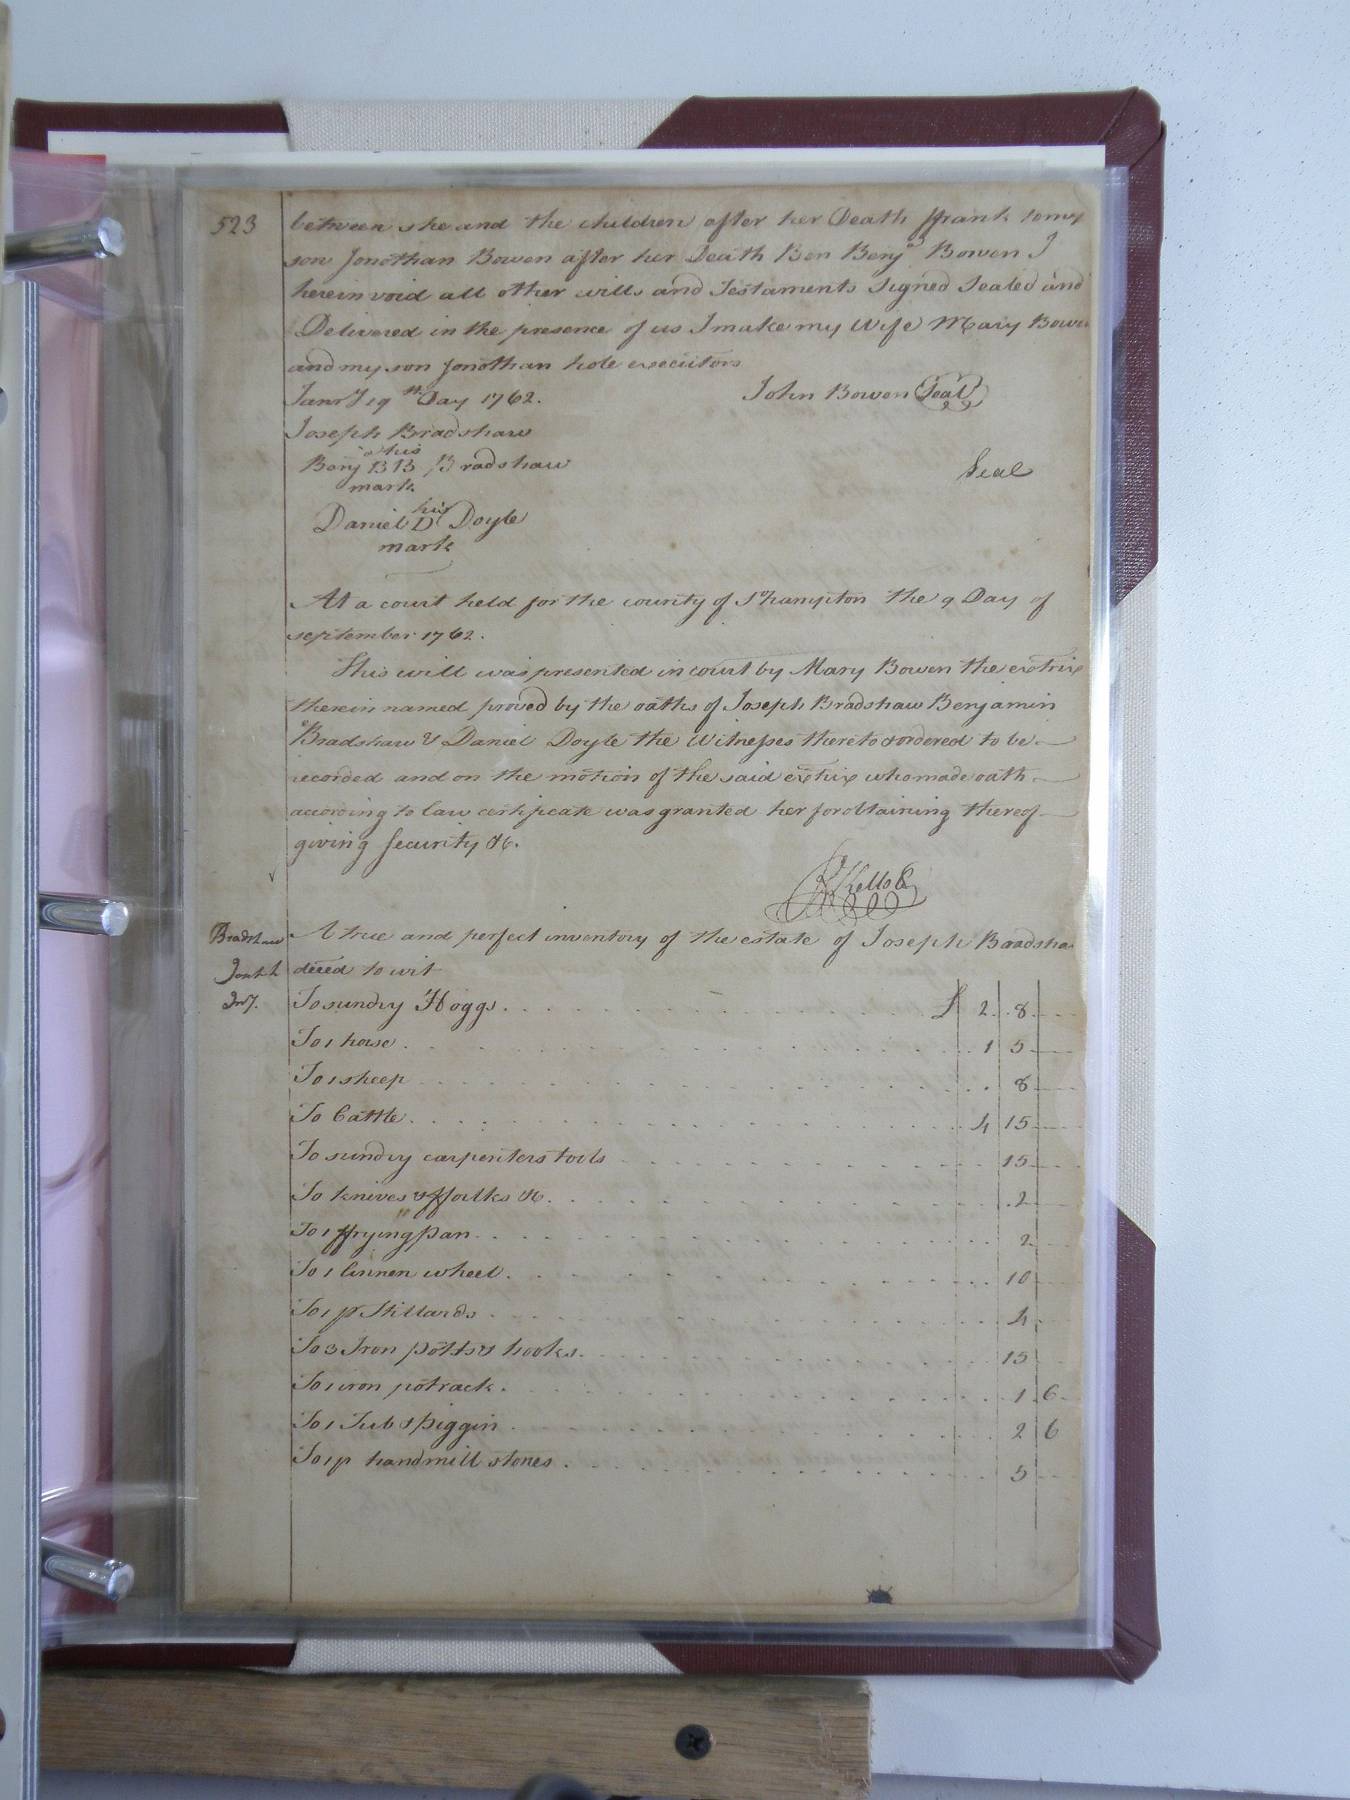 523
between she and the children after her Death ffrank to my
son Jonothan Bowen after her Death Ben Benja Bowen I
herein void all other wills and Testaments Signed Sealed and
Delivered in the presence of us I make my Wife Mary Bowen
and my son Jonothan hole executors
Janry 19th Day 1762.
John Bowen Seal
Joseph Bradshaw
his
Benj BB Bradshaw
mark
Seal
his
Daniel D Doyle
mark
At a court held for the county of Shampton the 9 Day of
september 1762.
This will was presented in court by Mary Bowen the extrix
therein named proved by the oaths of Joseph Bradshaw Benjamin
Bradshaw & Daniel Doyle the Witnesses thereto & ordered to be
recorded and on the motion of the said extrix who made oath
according to law certificate was granted her for obtaining thereof
giving Security &c.
R Kello C
Bradshaw
Invy.
A true and perfect inventory of the estate of Joseph Bradsha
deced to wit
To sundry Hoggs £ 2 8
To 1 horse 1 5
To 1 sheep 8
To Cattle 4 15
To sundry carpenters tools 15
To knives & fforks &c. 2
To 1 ffrying pan 2
To 1 linnen wheel 10
To 1 pr Stillards 4
To 3 Iron potts & hooks 15
To 1 iron potrack 1 6
To 1 Tub & piggin 2 6
To 1 pr handmill stones 5